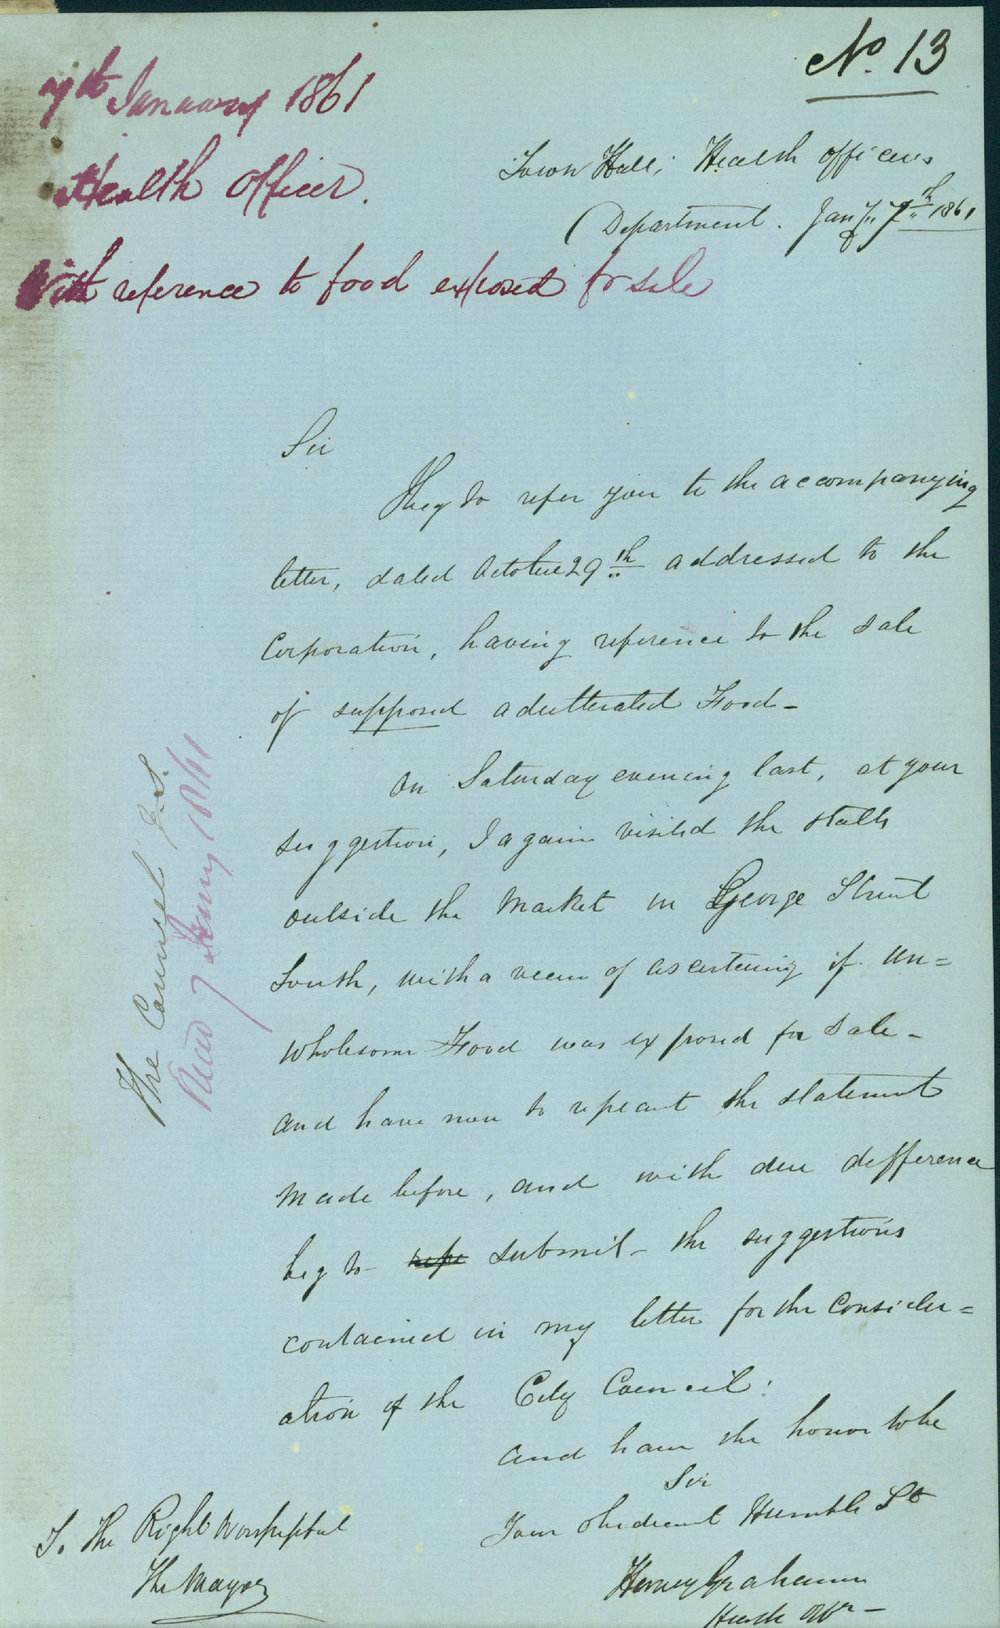 No. 13
7th January 1861
Health Officer.
With reference to food exposed for sale
Town Hall, Health Officers
Department. Jany. 7th 1861
Sir
I beg to refer you to the accompanying
letter, dated October 29th addressed to the
Corporation, having reference to the sale
of supposed adulterated Food -
On Saturday evening last, at your
suggestion, I again visited the stalls
outside the Market in George Street
South, with a view of ascertening if un=
wholesome Food was exposed for sale -
and have now to repeat the statement
made before, and with due defference
beg to repe submit the suggestions
contained in my letter for the consider=
ation of the City Council:
and have the honor to be
Sir
Your obedient Humble St
Henry Graham
Health Offr -
To The Right Worshipful
The Mayor
The Council
Read 7 Jany 1861